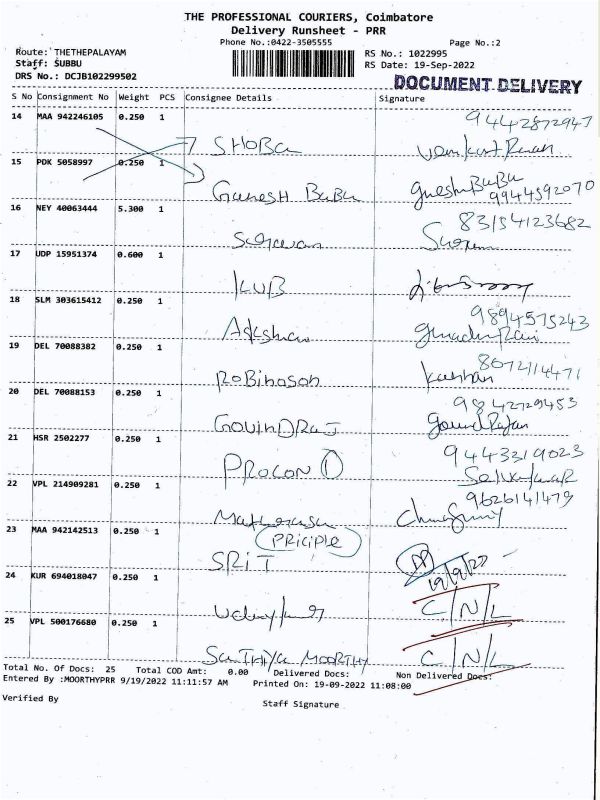 THE PROFESSIONAL COURIERS, Coimbatore
Delivery Runsheet - PRR
Phone No.:0422-3505555 Page No.:2
Route: THETHEPALAYAM RS No.: 1022995
Staff: SUBBU RS Date: 19-Sep-2022
DRS No.: DCJB102299502
DOCUMENT DELIVERY
S No Consignment No Weight PCS Consignee Details Signature
14 MAA 942246105 0.250 1
SHOBA
15 PDK 5058997 0.250 1
GANESH BABU 9944592070
16 NEY 40063444 5.300 1 83154123682
17 UDP 15951374 0.600 1
KUB
18 SLM 303615412 0.250 1
9894575243
19 DEL 70088382 0.250 1
RoBinoson
20 DEL 70088153 0.250 1
GOVINDRAJ
21 HSR 2502277 0.250 1 9443319023
PROCON
22 VPL 214909281 0.250 1 9626141479
23 MAA 942142513 0.250 1 PRICIPLE
SRIT
19/9/22
24 KUR 694018047 0.250 1 C/N/L
25 VPL 500176680 0.250 1
SANTHIYA MOORTHY C/N/L
Total No. Of Docs: 25 Total COD Amt: 0.00 Delivered Docs: Non Delivered Docs:
Entered By :MOORTHYPRR 9/19/2022 11:11:57 AM Printed On: 19-09-2022 11:08:00
Verified By Staff Signature